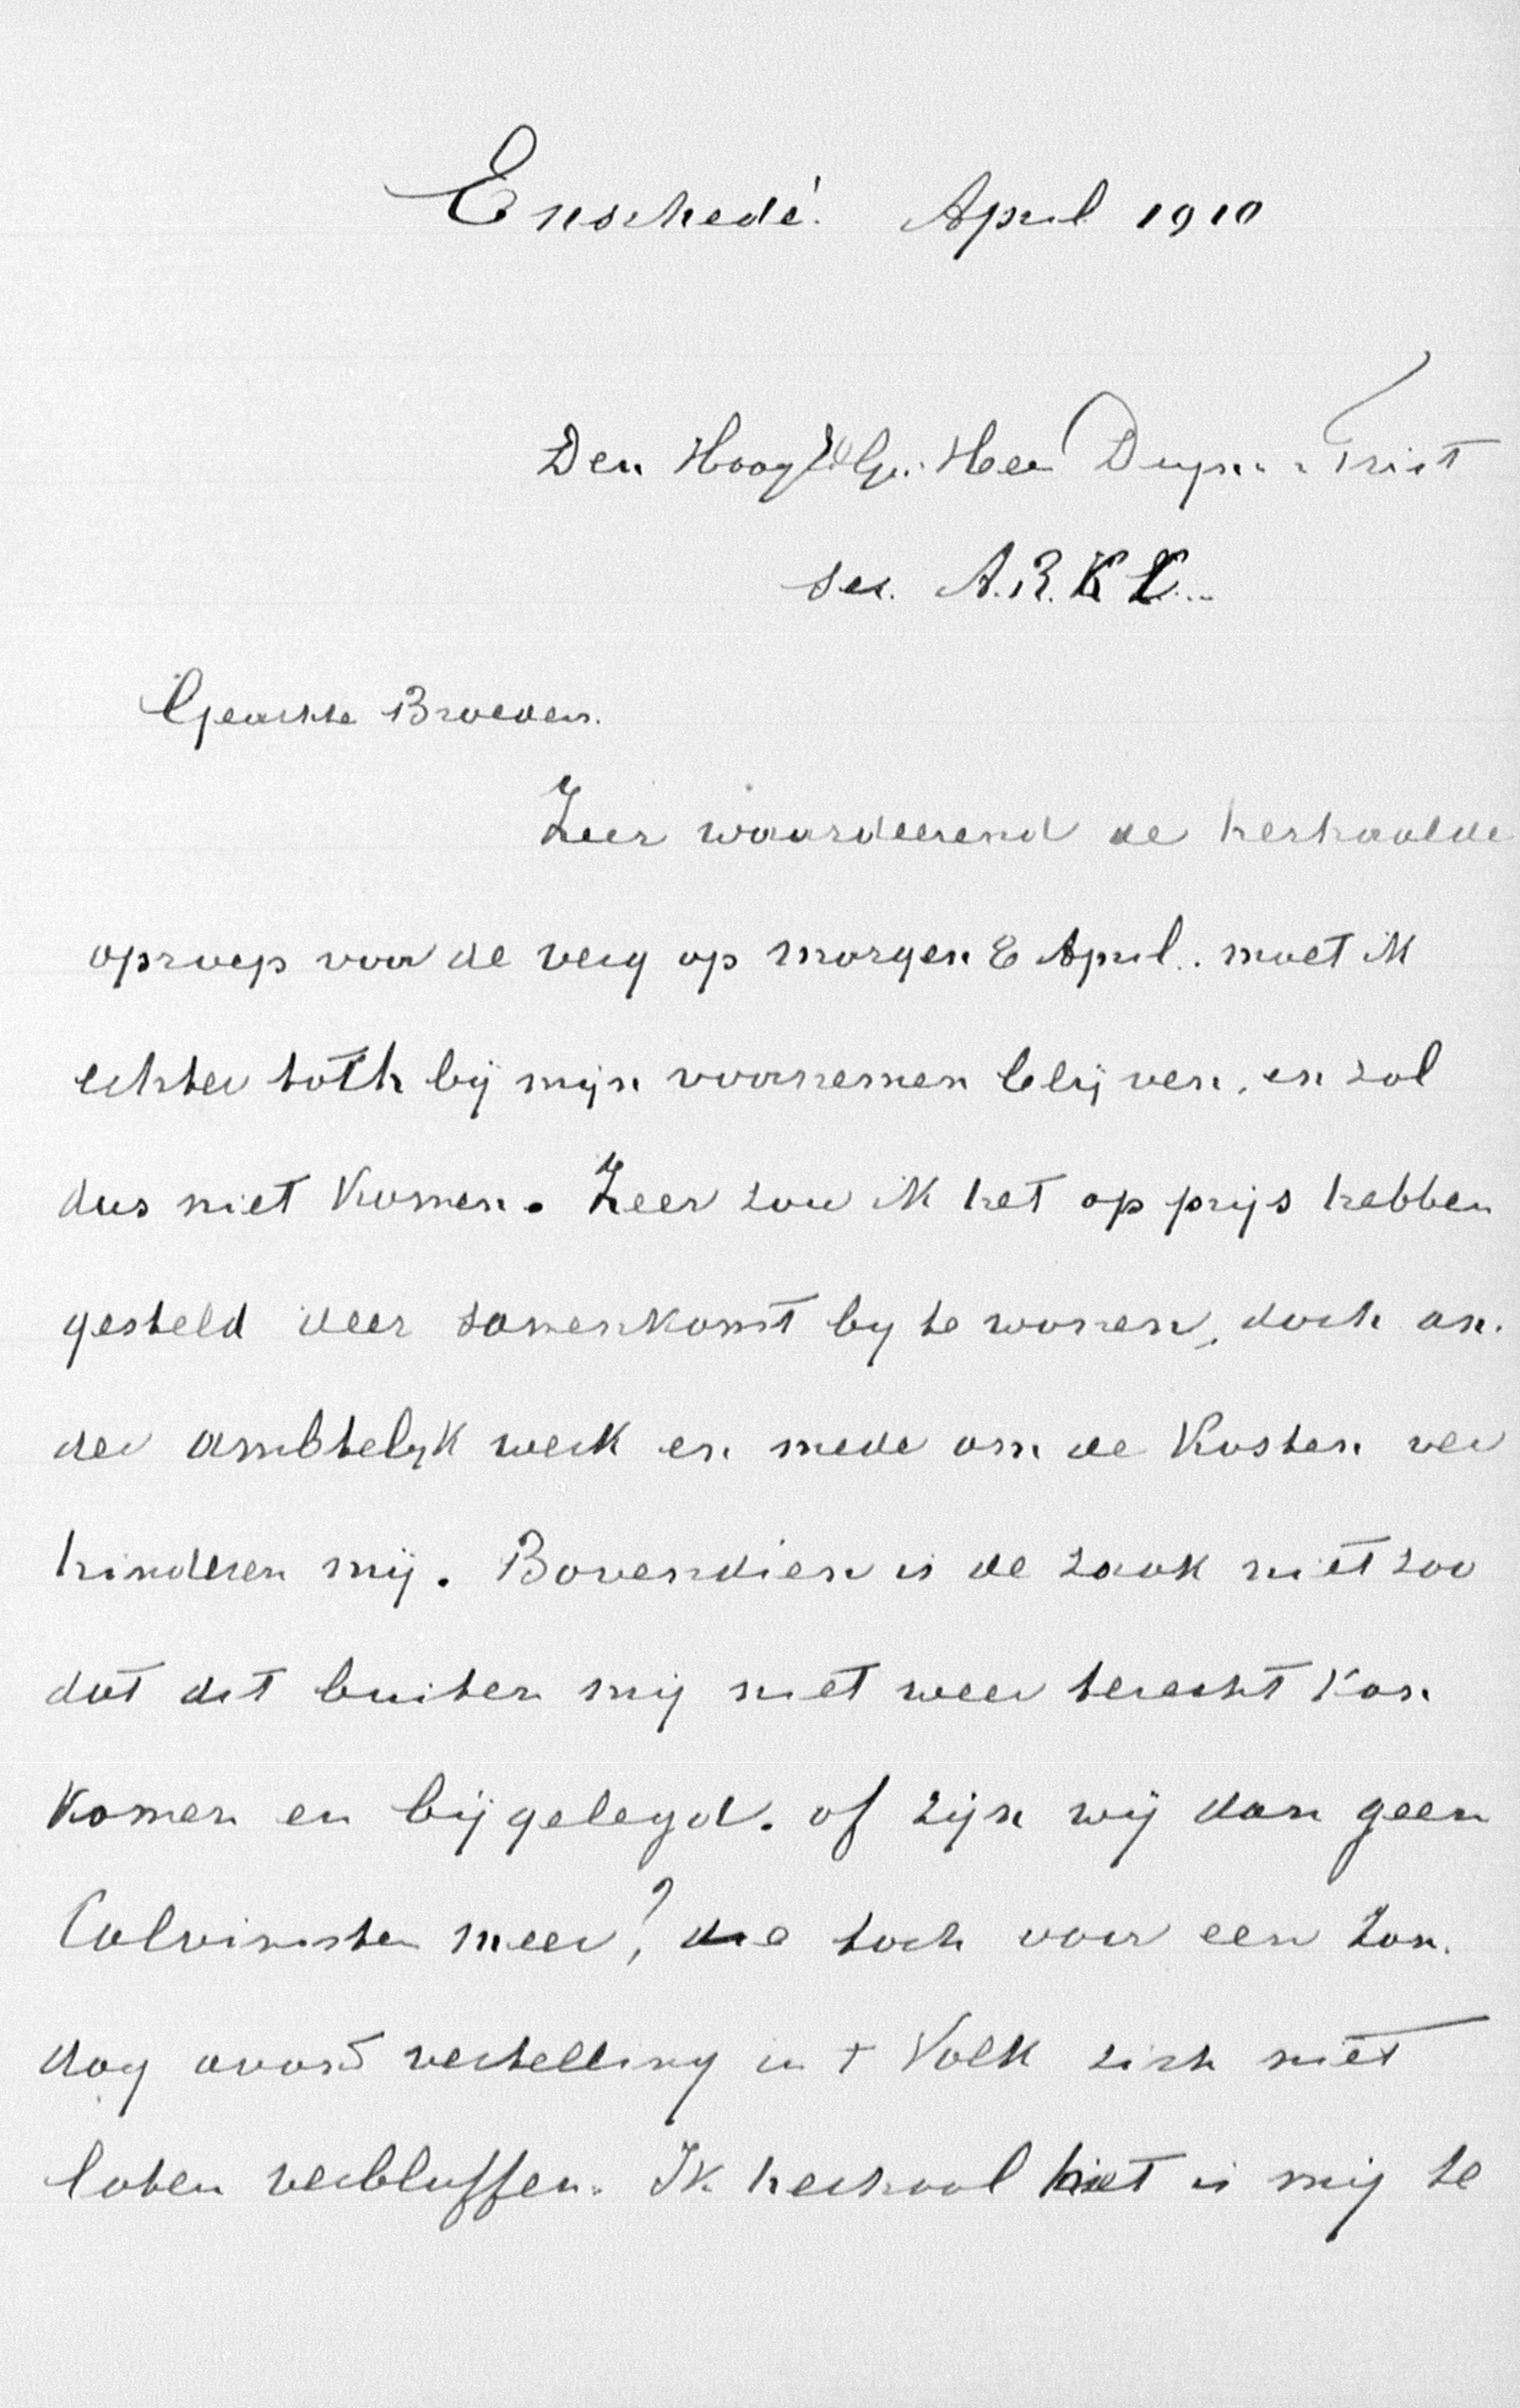 Enschedé. April 1910
Den HoogEdGe. Heer Duymaer Twist
sec. A.R.K.C...
Geachte Broeder.
Zeer waardeerend de herhaalde
oproep voor de verg op morgen 8 April. moet ik
echter toch bij mijn voornemen blijven, en zal
dus niet komen. Zeer zou ik het op prijs hebben
gesteld deer samenkomst by te wonen, doch an.
der ambtelyk werk en mede om de kosten ver
hinderen mij. Bovendien is de zaak niet zoo
dat dit buiten mij niet weer terecht kan
komen en bijgelegd. of zijn wij dan geen
Calvinisten meer,? die toch voor een Zon.
dag avond vertelling in t Volk zich niet
laten verbluffen. Ik herhaal het is mij te